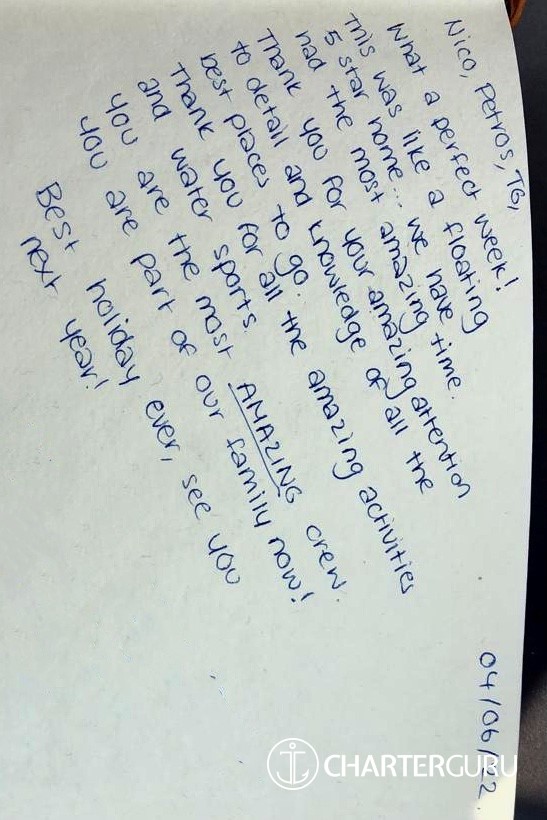 04/06/22.
Nico, Petros, TG,
What a perfect week!
This was like a floating
5 star home... we have
had the most amazing time.
Thank you for your amazing attention
to detail and knowledge of all the
best places to go.
Thank you for all the amazing activities
and water sports.
You are the most AMAZING crew.
You are part of our family now!
Best holiday ever, see you
next year!
CHARTERGURU